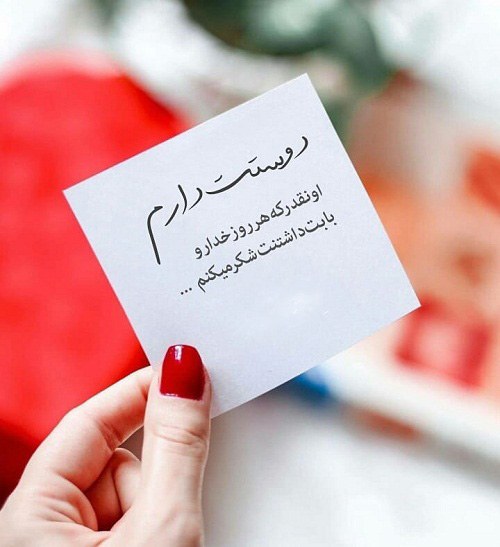 دوستت دارم
اونقدر که هر روز خدا رو
بابت داشتنت شکر میکنم ...